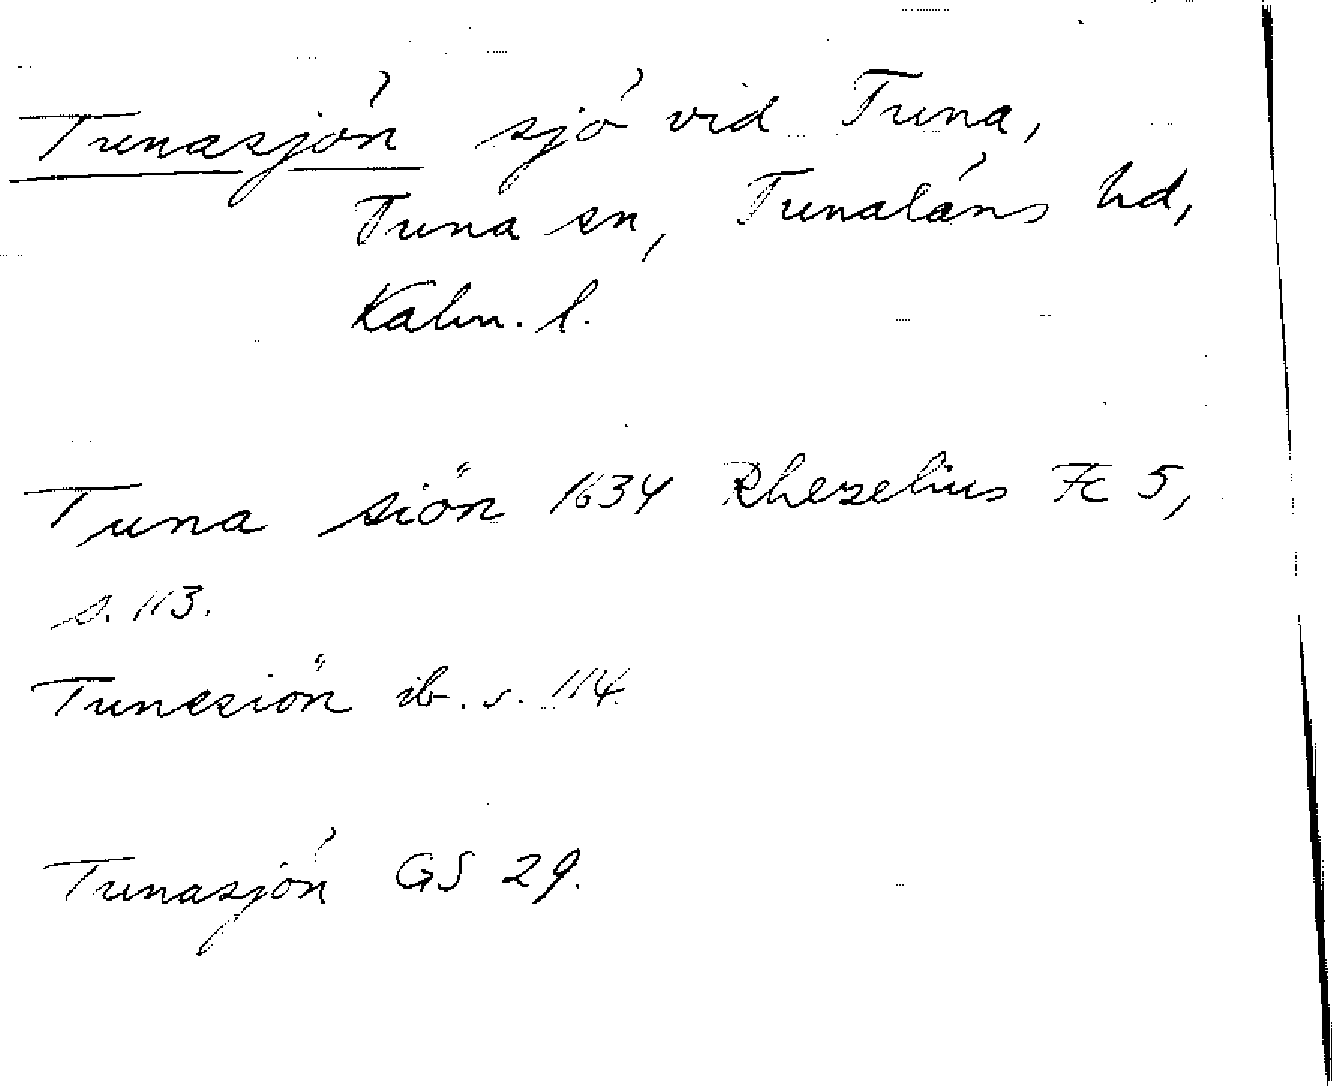 Tunasjön sjö vid Tuna,
Tuna sn, Tunaläns hd,
Kalm. l.
Tuna siön 1634 Rhezelius Fc 5,
s. 113.
Tunesiön ib. s. 114
Tunasjön GS 29.